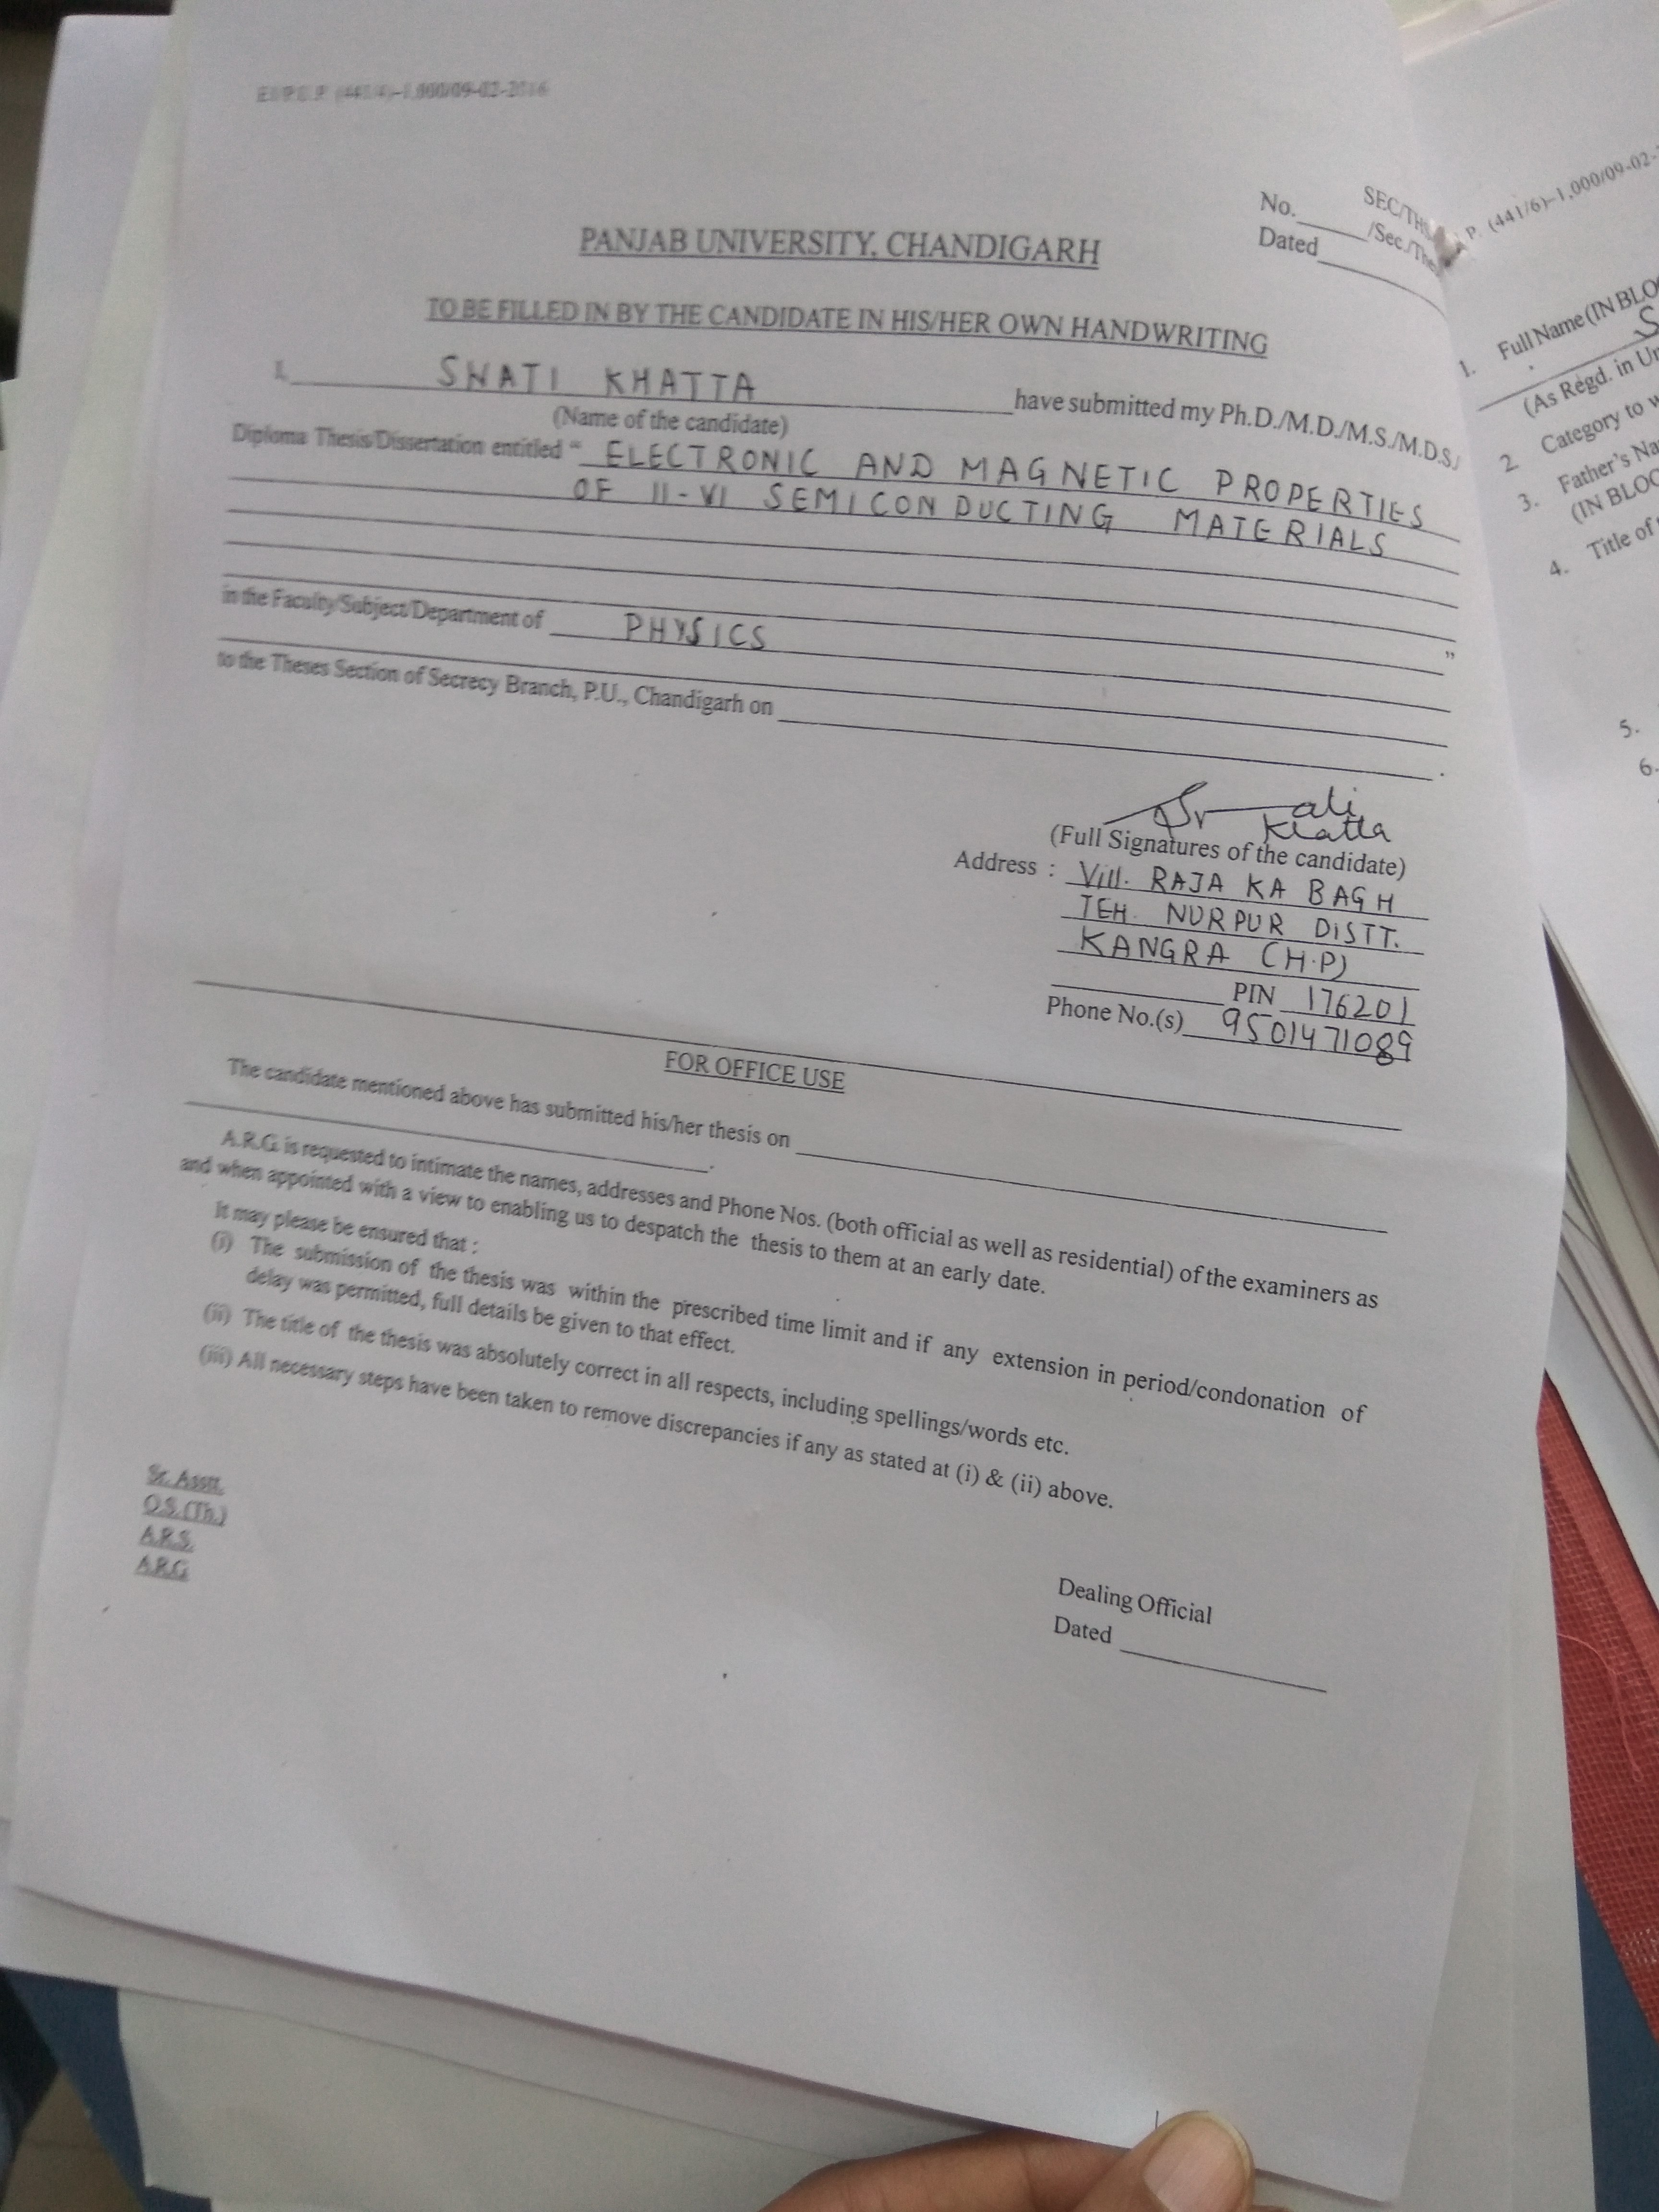 (441/4)–1,000/09-02-2016
SEC/TH
No. /Sec./The
Dated
PANJAB UNIVERSITY, CHANDIGARH
TO BE FILLED IN BY THE CANDIDATE IN HIS/HER OWN HANDWRITING
I, SWATI KHATTA have submitted my Ph.D./M.D./M.S./M.D.S./
(Name of the candidate)
Diploma Thesis/Dissertation entitled “ ELECTRONIC AND MAGNETIC PROPERTIES
OF II-VI SEMICONDUCTING MATERIALS
”
in the Faculty/Subject/Department of PHYSICS
to the Theses Section of Secrecy Branch, P.U., Chandigarh on .
Swati
Khatta
(Full Signatures of the candidate)
Address : Vill. RAJA KA BAGH
TEH. NURPUR DISTT.
KANGRA (H.P)
PIN 176201
Phone No.(s) 9501471089
FOR OFFICE USE
The candidate mentioned above has submitted his/her thesis on
.
A.R.G. is requested to intimate the names, addresses and Phone Nos. (both official as well as residential) of the examiners as
and when appointed with a view to enabling us to despatch the thesis to them at an early date.
It may please be ensured that :
(i) The submission of the thesis was within the prescribed time limit and if any extension in period/condonation of
delay was permitted, full details be given to that effect.
(ii) The title of the thesis was absolutely correct in all respects, including spellings/words etc.
(iii) All necessary steps have been taken to remove discrepancies if any as stated at (i) & (ii) above.
Sr. Asstt.
O.S.(Th.)
A.R.S.
A.R.G
Dealing Official
Dated
P. (441/6)–1,000/09-02-
1. Full Name (IN BLO
S
(As Regd. in Un
2. Category to w
3. Father's Na
(IN BLOC
4. Title of
5.
6.